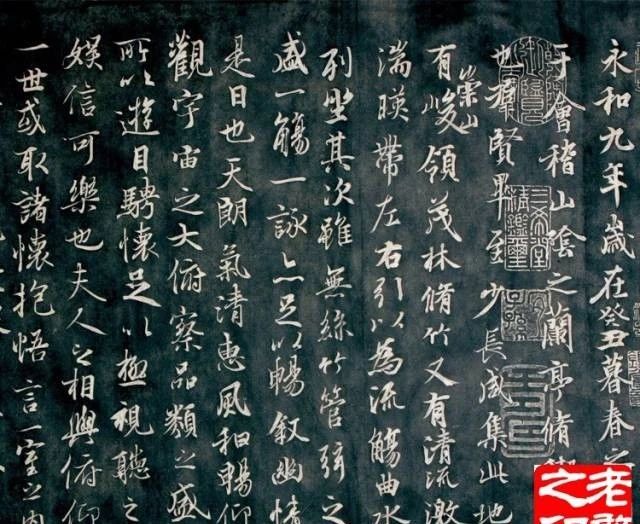 永和九年歲在癸丑暮春之
于會稽山陰之蘭亭脩禊
也羣賢畢至少長咸集此地
有崇山峻領茂林脩竹又有清流激
湍暎帶左右引以為流觴曲水
列坐其次雖無絲竹管弦之
盛一觴一詠亦足以暢敘幽情
是日也天朗氣清惠風和暢仰
觀宇宙之大俯察品類之盛
所以遊目騁懷足以極視聽之
娛信可樂也夫人之相與俯仰
一世或取諸懷抱悟言一室之內
老
之